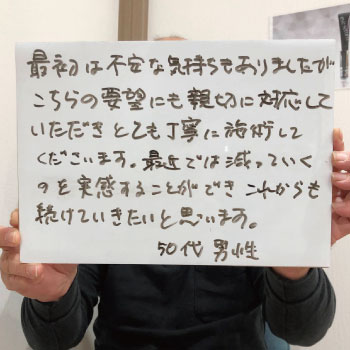 最初は不安な気持ちもありましたが
こちらの要望にも親切に対応して
いただきとても丁寧に施術して
くださいます。最近では減っていく
のを実感することができ これからも
続けていきたいと思います。
50代 男性